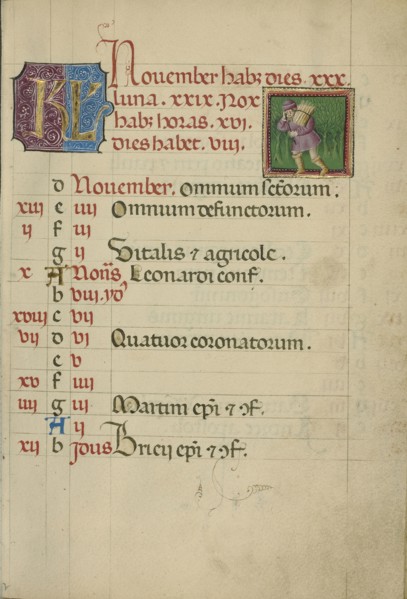 KL
November habꝫ dies . xxx.
luna . xxix . Nox
habꝫ horas . xvi.
dies habet . viii.
d November . Omnium sctorum .
xiii e iiii Omnium defunctorum .
ii f iii
g ii Vitalis ⁊ agricole .
x A Nonis Leonardi conf.
b viii . yd'
xviii c vii
vii d vi Quatuor coronatorum .
e v
xv f iiii
iiii g iii Martini epi ⁊ ↄf.
A ii
xii b ydus Bricij epi ⁊ ↄf.